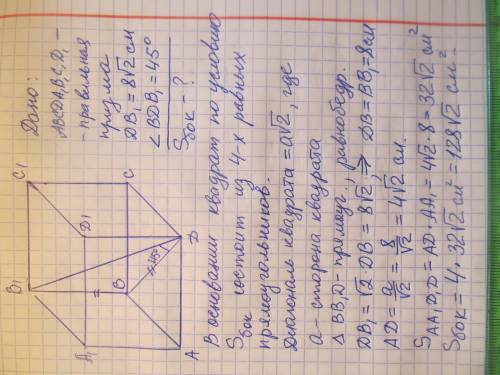 Дано:
ABCDA₁B₁C₁D₁ –
– правильная
призма
DB₁ = 8√2 см
∠BDB₁ = 45°
Sбок – ?
B₁
C₁
A₁
D₁
B
C
45°
A
D
В основании квадрат по условию
Sбок состоит из 4-х равных
прямоугольников.
Диагональ квадрата = a√2, где
a – сторона квадрата
△ BB₁D – прямоуг., равнобедр.
DB₁ = √2 · DB = 8√2, ⇒ DB = BB₁ = 8см
AD = a/√2 = 8/√2 = 4√2 см.
SAA₁D₁D = AD · AA₁ = 4√2 · 8 = 32√2 см²
Sбок = 4 · 32√2 см² = 128√2 см².